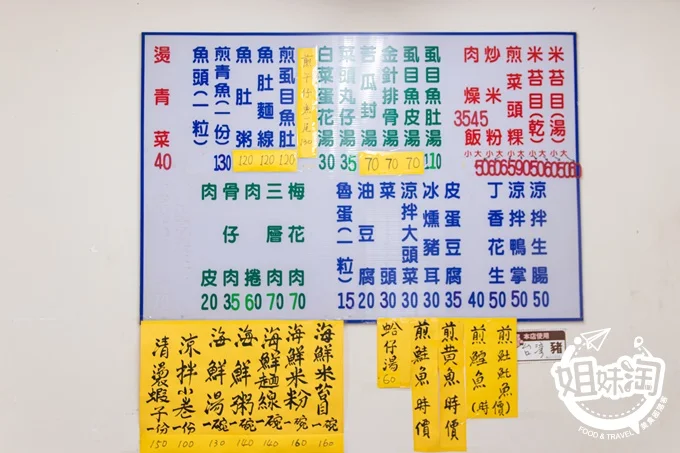 米苔目(湯) 小大
米苔目(乾) 小大
煎菜頭粿
炒米粉 小大
肉燥飯 小大 3545
虱目魚肚湯 110
虱目魚皮湯 70
金針排骨湯 70
苦瓜封湯 70
菜頭丸仔湯 35
白菜蛋花湯 30
煎虱目魚肚 120
魚肚麵線 120
魚肚粥 120
煎青魚(一份) 130
魚頭(一粒)
燙青菜 40
涼拌生腸 50
涼拌鴨掌 50
丁香花生 40
皮蛋豆腐 35
冰燻豬耳 30
涼拌大頭菜 30
菜頭 30
油豆腐 20
魯蛋(一粒) 15
梅花肉 70
三層肉 70
肉捲 60
骨仔肉 35
肉皮 20
海鮮米苔目一碗 160
海鮮米粉一碗 160
海鮮麵線一碗 140
海鮮粥一碗 140
海鮮湯一碗 130
涼拌小卷一份 100
清燙蝦子一份 150
煎魟魠魚(時價)
煎鱈魚(時)
煎黃魚時價
煎鮭魚時價
蛤仔湯 60
本店使用
台灣豬
姐妹淘
FOOD & TRAVEL